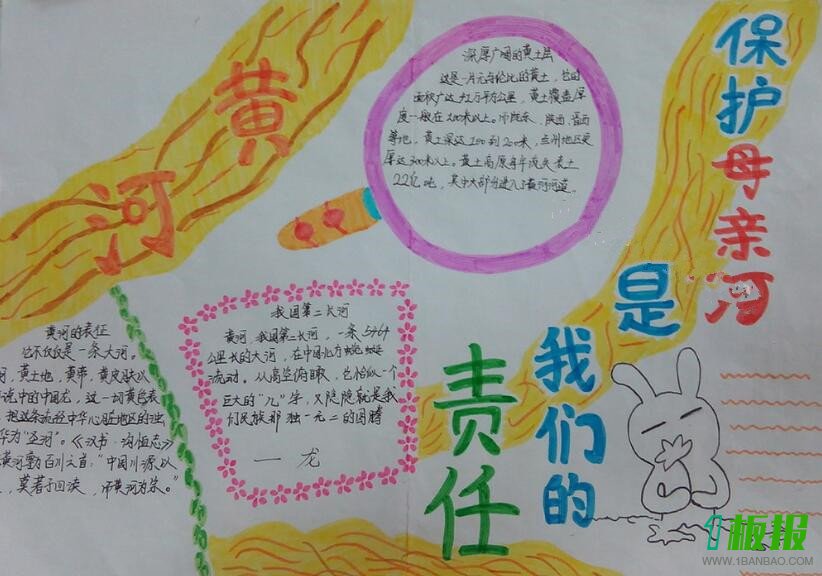 黄河
保护母亲河
是
我们的
责任
深厚广阔的黄土层
这是一片无与伦比的黄土,它的
面积广达42万平方公里,黄土覆盖厚
度一般在100米以上。
黄土深达100到200米,兰州地区更
厚达300米以上。黄土高原每年流失表土
22亿吨,其中大部分进入了黄河河道。
我国第二长河
黄河,我国第二长河,一条5464
公里长的大河,在中国北方蜿蜒
流动。从高空俯瞰,它恰似一个
巨大的"几"字,又隐隐就是我
们民族那独一无二的图腾
——龙
黄河的表征
它不仅仅是一条大河。
河,黄土地,黄帝,黄皮肤以
说中的中国龙,这一切黄色表
把这条流经中华心脏地区的浊
华为"圣河"。《汉书·沟恤志》
黄河尊为百川之首:"中国川源以
,莫著于四渎,而黄河为宗。"
1板报
WWW.1BANBAO.COM